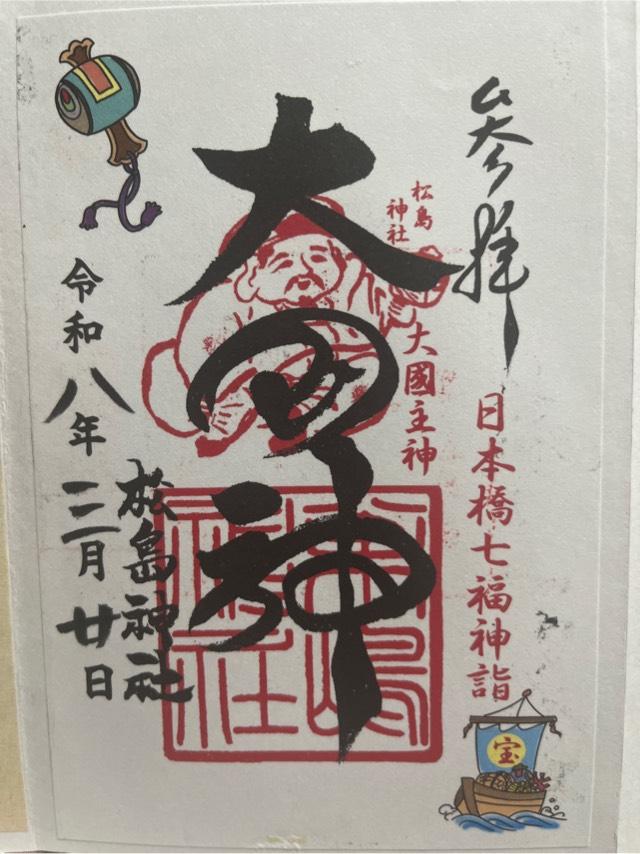 参拝
日本橋七福神詣
宝
松島
神社
大國主神
大国神
松島神社
松島神社
令和八年三月廿日